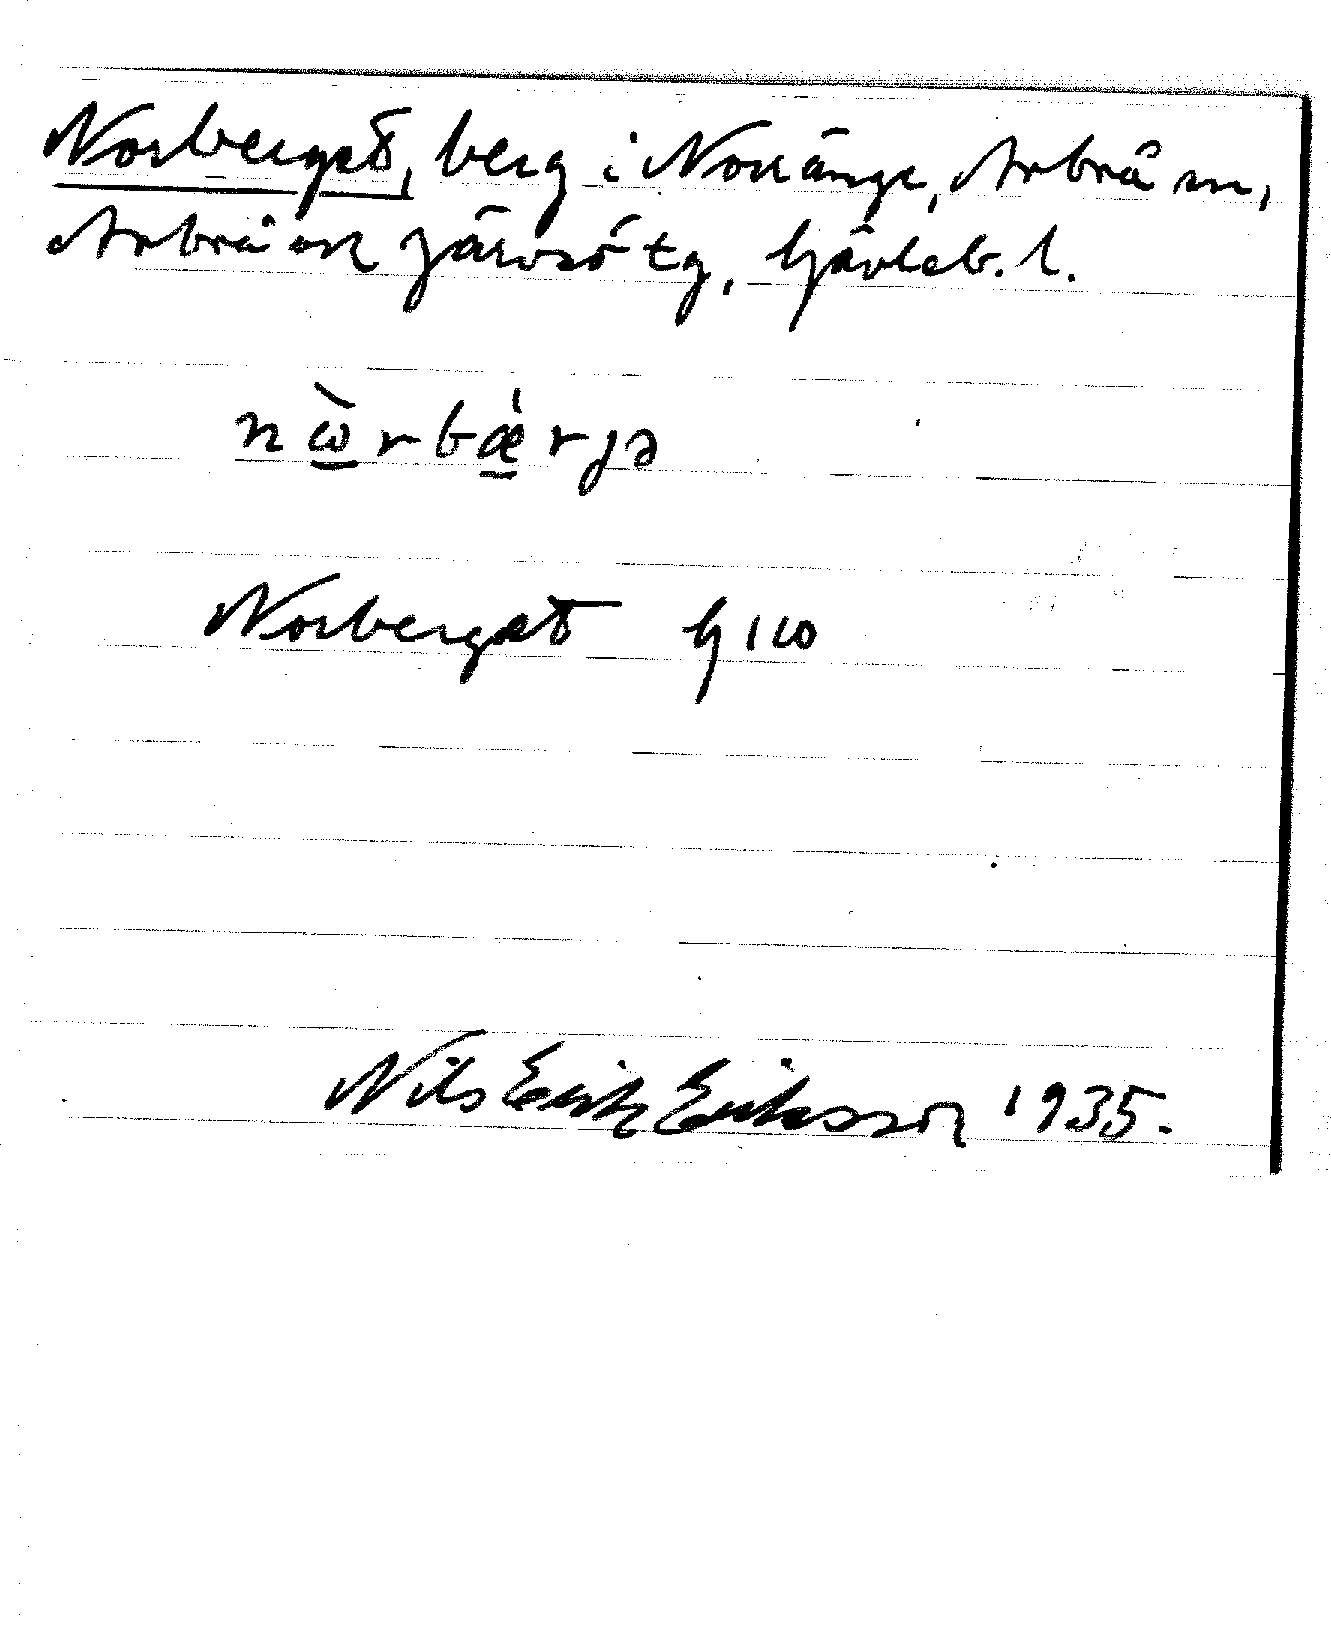 Norberget, berg i Norränge, Arbrå sn,
Arbrå och Järvsö tg, Gävleb. l.
nὼ̲rbǽ̲rjə
Norberget G 110
Nils Erik Eriksson 1935.